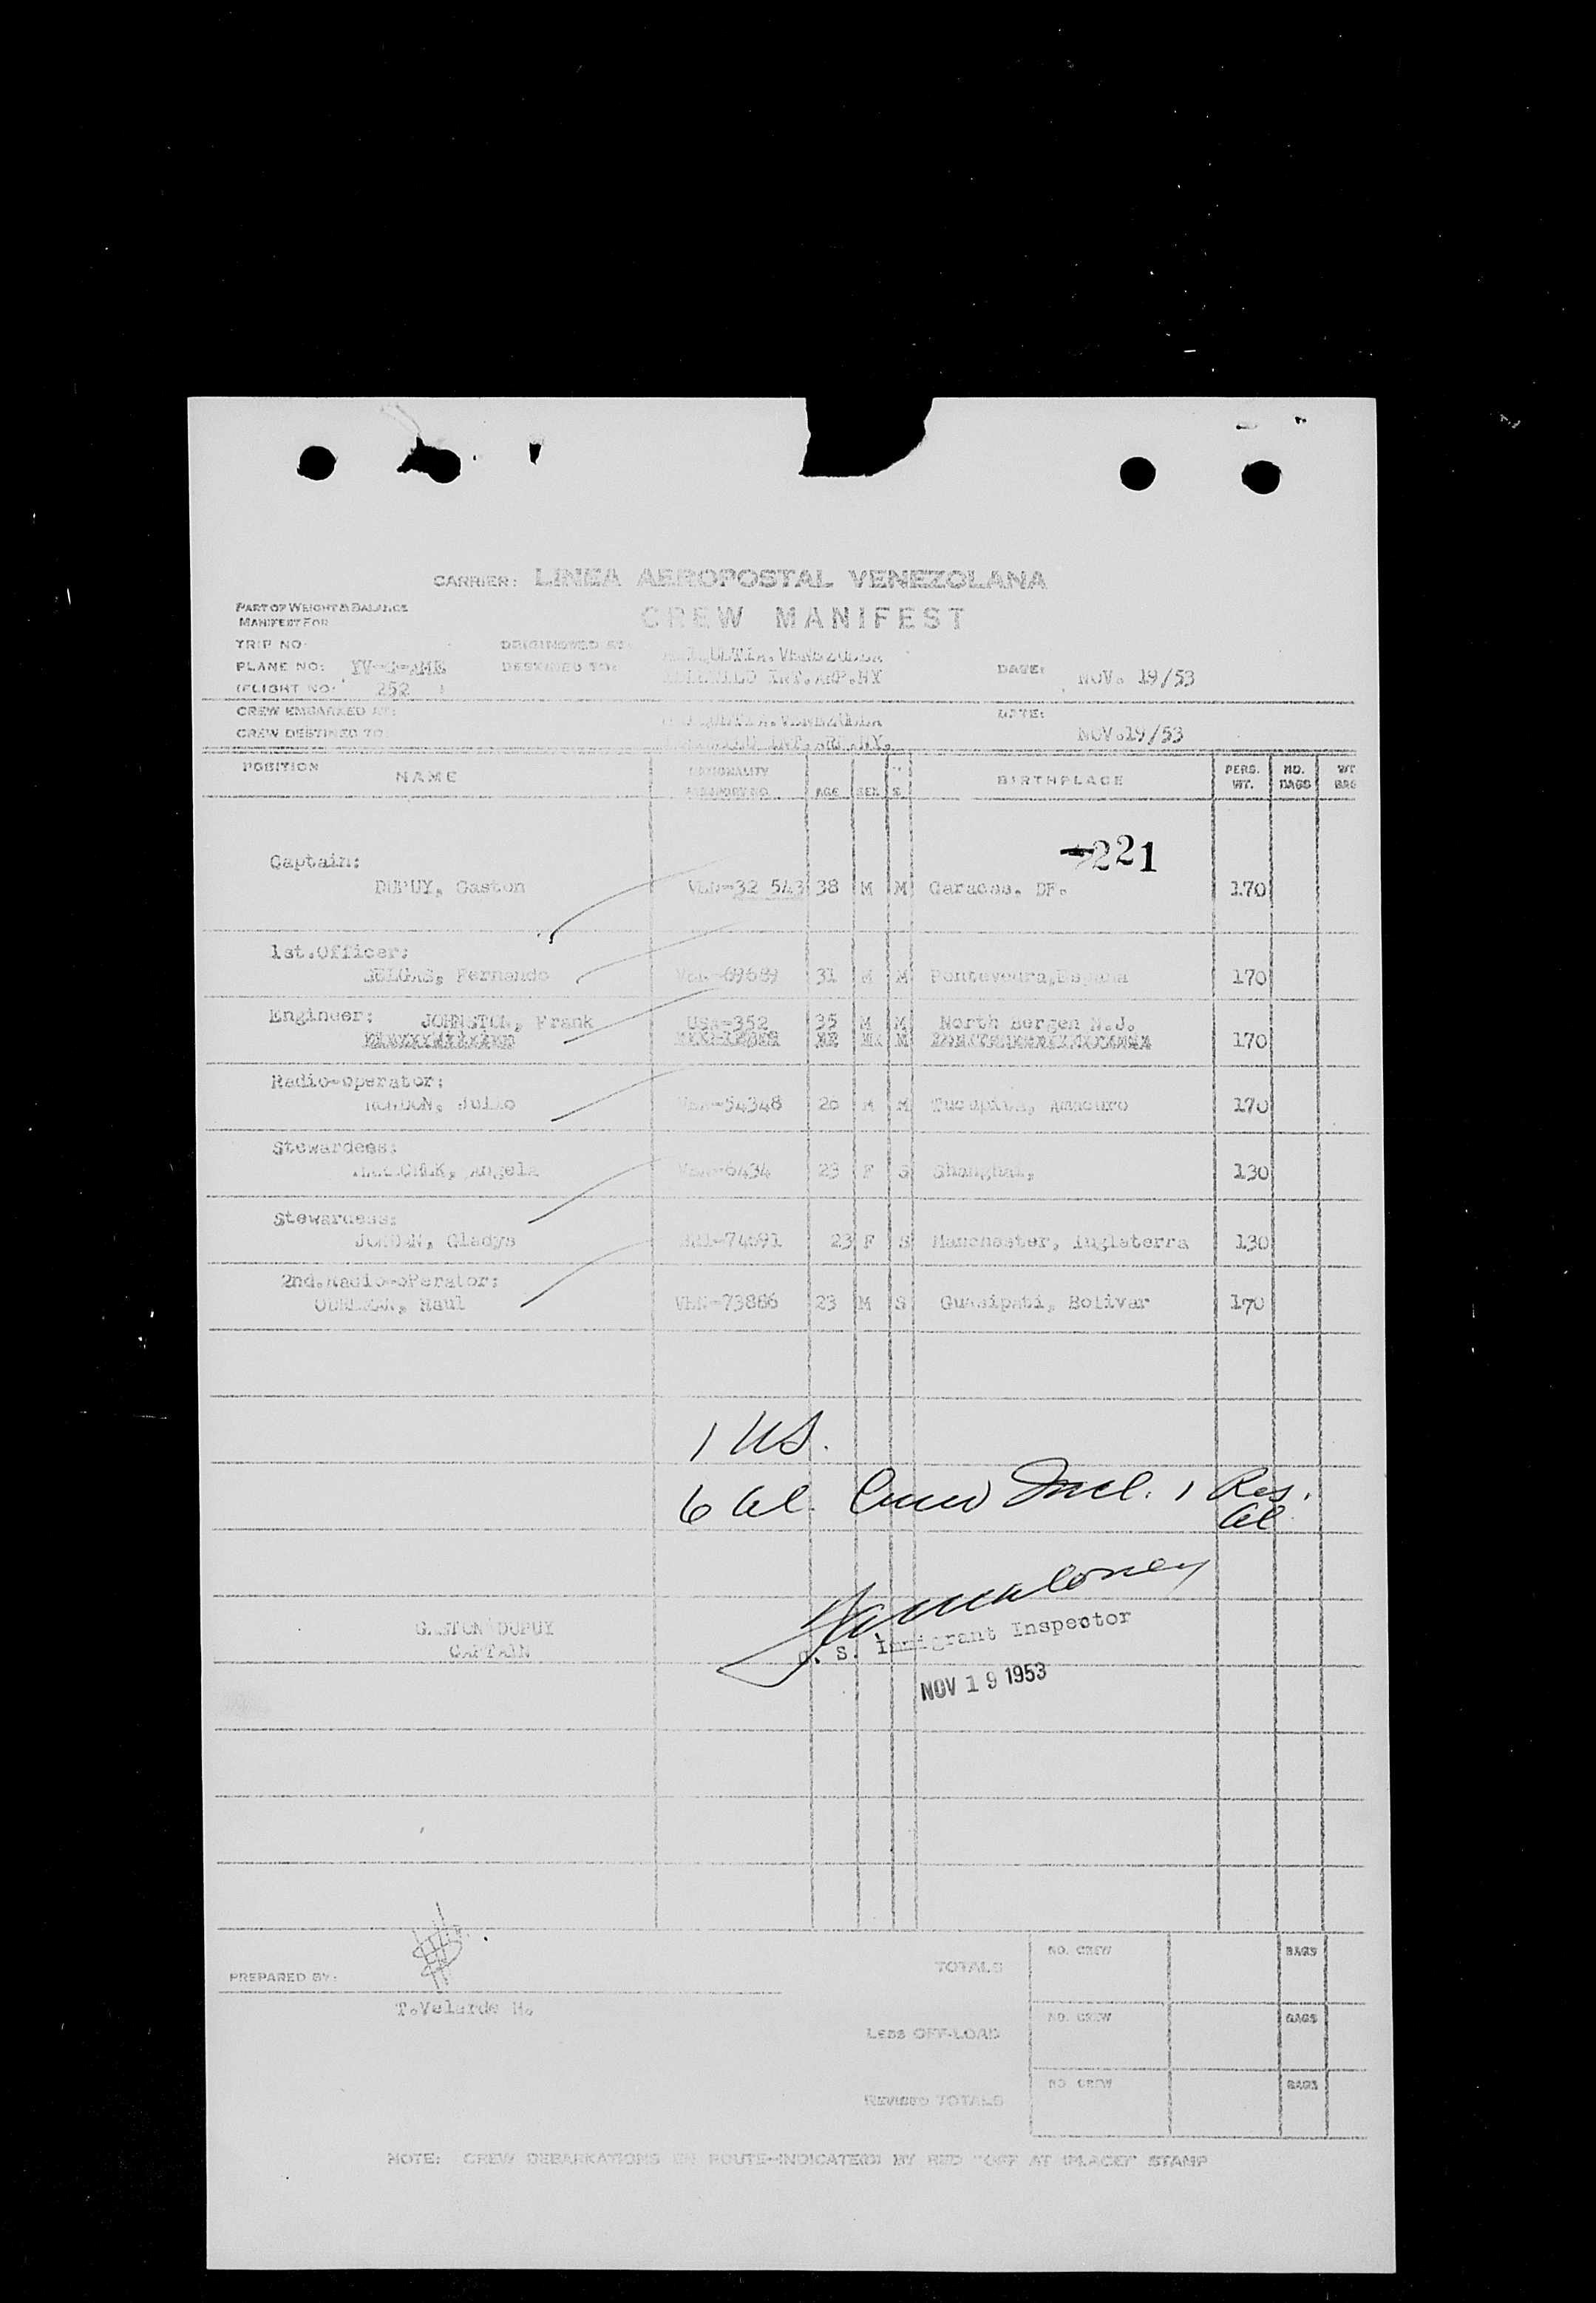 CARRIER: LINEA AEROPOSTAL VENEZOLANA
PART OF WEIGHT & BALANCE
MANIFEST FOR
CREW MANIFEST
TRIP NO:
PLANE NO: YV-C-AME DESTINED TO: INT.ARP.NY DATE: NOV. 19/53
FLIGHT NO: 252
CREW EMBARKED AT: DATE:
CREW DESTINED TO: NOV.19/53
POSITION NAME NATIONALITY PASSPORT NO. AGE SEX S. BIRTHPLACE PERS. WT. NO. BAGS WT BAG
221
Captain:
DUPUY, Gaston VEN-32 543 38 M M Caracas, DF. 170
1st.Officer:
Fernando 69689 31 M M Pontevedra,España 170
Engineer: JOHNSTON, Frank USA-352 35 M M North Bergen N.J.
170
Radio-operator:
RONDON, Julio 54348 26 M M Tucupita, Amacuro 170
Stewardess:
Angela 6434 23 F S Shanghai, 130
Stewardess:
Gladys 74691 23 F S Manchester, Inglaterra 130
2nd.Radio-oPerator:
Raul VEN-73866 23 M S Guasipati, Bolivar 170
1 US.
6 Al. Crew Incl. 1 Res.
Al.
GASTON DUPUY
CAPTAIN
U. S. Immigrant Inspector
NOV 19 1953
PREPARED BY:
T.Velarde H.
TOTALS NO. CREW BAGS
Less OFF-LOAD NO. CREW BAGS
REVISED TOTALS NO CREW BAGS
NOTE: CREW DEBARKATIONS EN ROUTE-INDICATED BY RED "OFF AT (PLACE)" STAMP